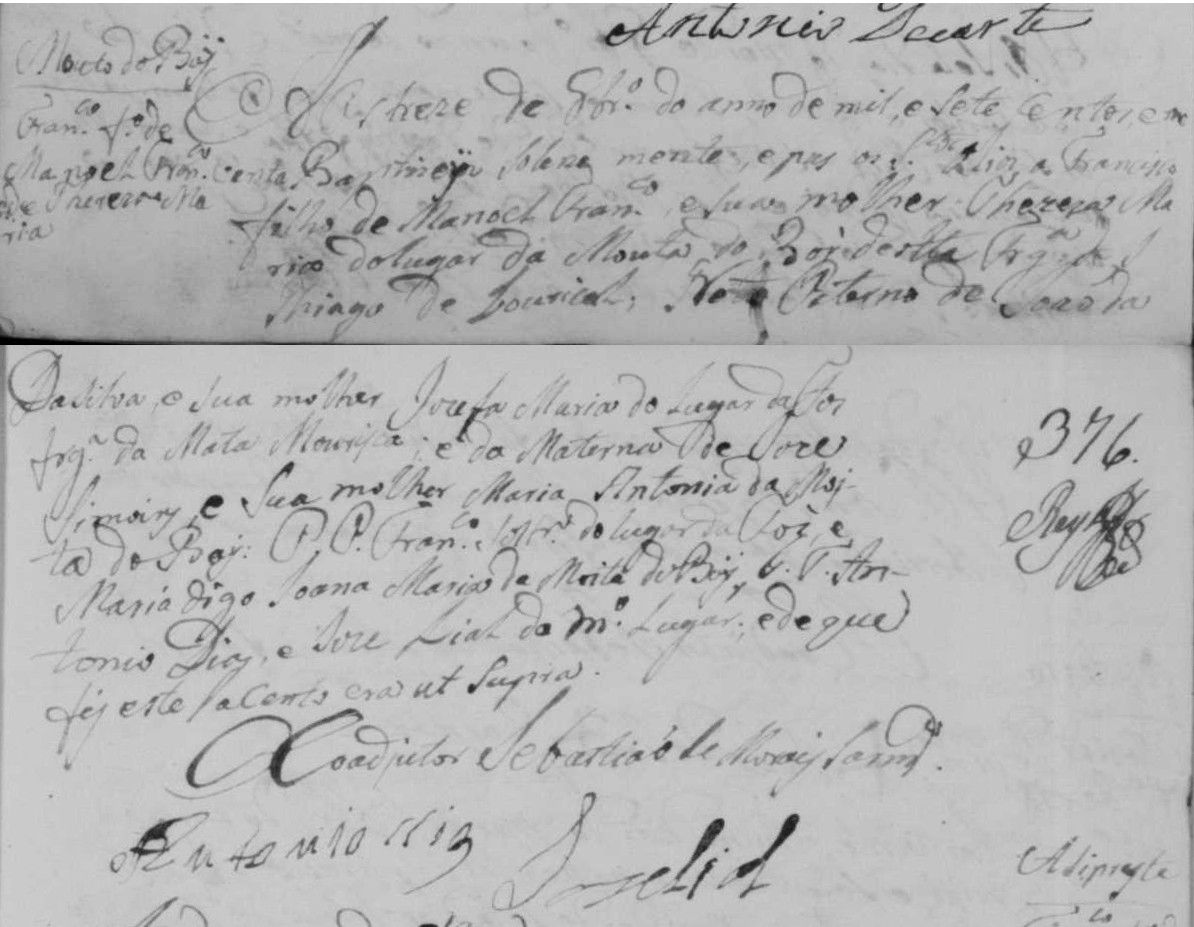 Antonio Duarte
Mouta do Boÿ
Fran.co f.o de
Manoel Fran.co
e Thereza Ma
ria
Aos threze de 8br.o do anno de mil, e Sete Centos, e no
venta Baptizeÿ Solene mente, e pus os S.tos Olios a Francisco
filho de Manoel Fran.co, e Sua molher Thereza Ma
ria do lugar da Mouta do Boÿ desta Frg.a de S
Thiago de Louriçal; Neto Paterno de Joaõ da
Da Silva, e Sua molher Jozefa Maria do Lugar da Foz
frg.a da Mata Mourisca; e da Materna de Joze
Simoins, e Sua molher Maria Antonia da Moi-
ta do Boÿ: P. P. Fran.co do lugar da Foz, e
Maria digo Joana Maria da Moita do Boÿ, T. T. An-
tonio Dias, e Joze Lial do m.o Lugar; e de que
fiz este aCento era ut Supra.
O Coadjutor Sebastiaõ de Morais
Antonio Dias
Joze Lial
376.